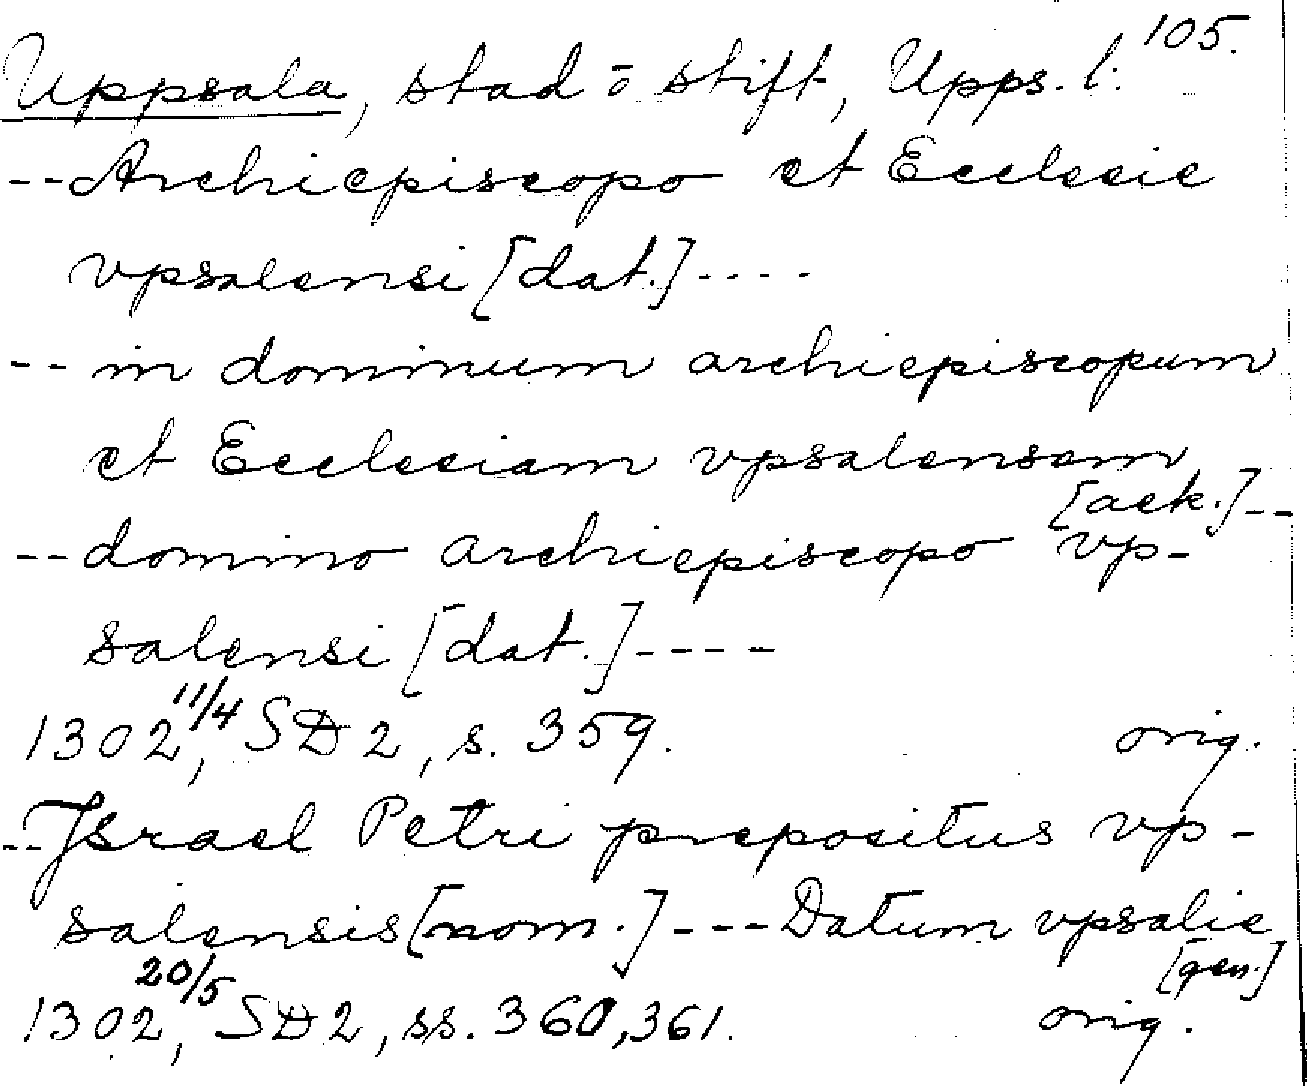 105.
Uppsala, stad o stift, Upps. l.
-- Archiepiscopo et Ecclesie
vpsalensi [dat.] ----
-- in dominum archiepiscopum
et Ecclesiam vpsalensem
[ack.] --
-- domino archiepiscopo vp-
salensi [dat.] ----
1302 11/4, SD 2, s. 359. orig.
-- Israel Petri prepositus vp-
salensis [nom.] --- Datum vpsalie
[gen.]
1302 20/5, SD 2, ss. 360, 361. orig.